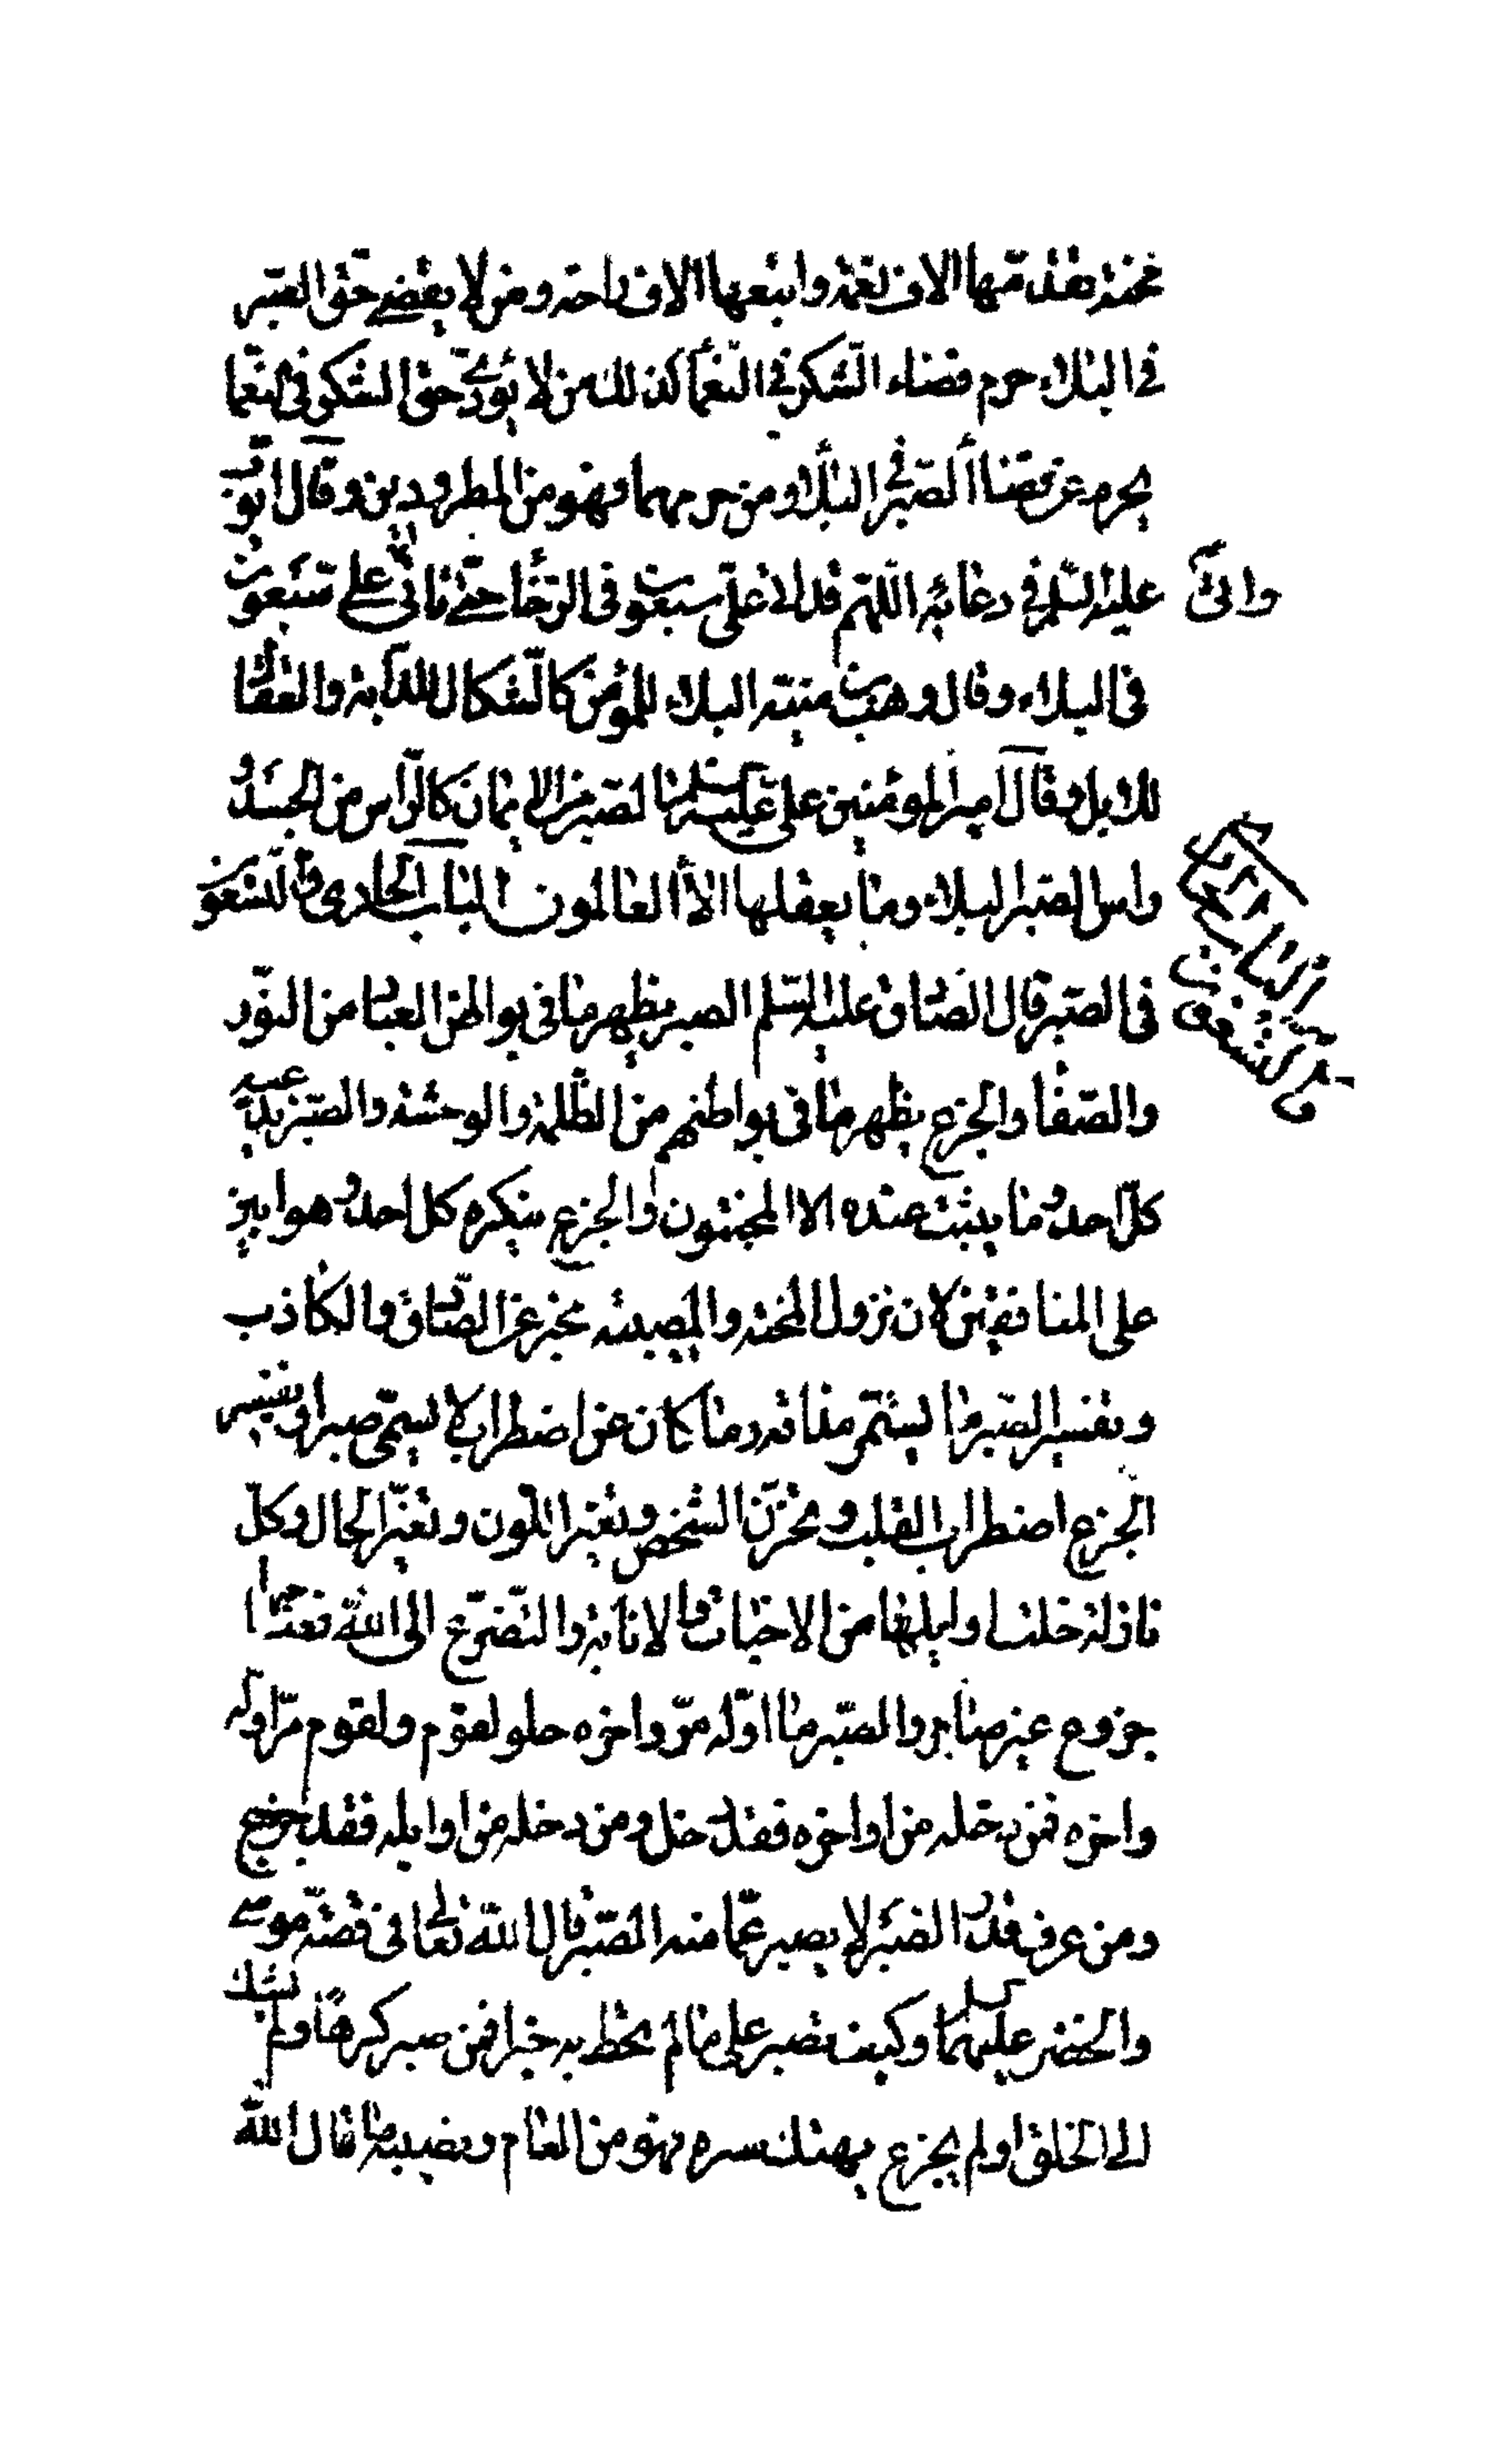 محنة تقدمها الاف نعمة واتبعها الاف راحة ومن لا يقضى حق الصبر
فى البلاء حرم قضاء الشكر فى النعما كذلك من لا يؤدى حق الشكر فى النعما
يحرم عن قضاء الصبر فى البلاء ومن حرمهما فهو من المطرودين وقال ايوب
عليه السلم فى دعائه اللهم قد اتى على سبعون فى الرخا حتى تاتى على سبعون
واتى
فى البلاء وقال وهب بن منبه البلاء للمؤمن كالشكال للدابة والعقال
للابل وقال امير المؤمنين على عليه السلم الصبر من الايمان كالراس من الجسد و
راس الصبر البلاء وما يعقلها الا العالمون الباب الحادى والتسعون
فى الصبر قال الصادق عليه السلم الصبر يظهر ما فى بواطن العباد من النور
والصفا والجزع يظهر ما فى بواطنهم من الظلمة والوحشة والصبر يدعيه
كل احد وما يثبت عنده الا المخبتون والجزع ينكره كل احد وهو ابين
على المنافقين لان نزول المحنة والمصيبة مخبر عن الصادق والكاذب
وتفسير الصبر ما يستمر مذاقه وما كان عن اضطراب لا يسمى صبرا وتفسير
الجزع اضطراب القلب وتحزن الشخص وتغير اللون وتغير الحال وكل
نازلة خلت اوايلها من الاخبات والانابة والتضرع الى الله فصاحبها
جزوع غير صابر والصبر ما اوله مر واخره حلو لقوم ولقوم مر اوله
واخره فمن دخله من اواخره فقد دخل ومن دخله من اوايله فقد خرج
ومن عرف قدر الصبر لا يصبر عما منه الصبر قال الله تعالى فى قصة موسى
والخضر عليهما السلم وكيف تصبر على ما لم تحط به خبرا فمن صبر كرها ولم يشك
الى الخلق او لم يجزع بهتك ستره فهو من العام ونصيبه ما قال الله